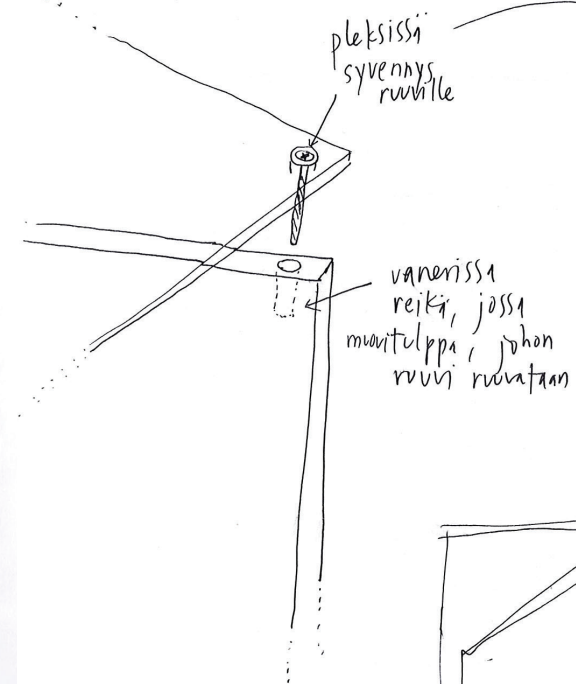 pleksissä
syvennys
ruuville
vanerissa
reikä, jossa
muovitulppa, johon
ruuvi ruuvataan